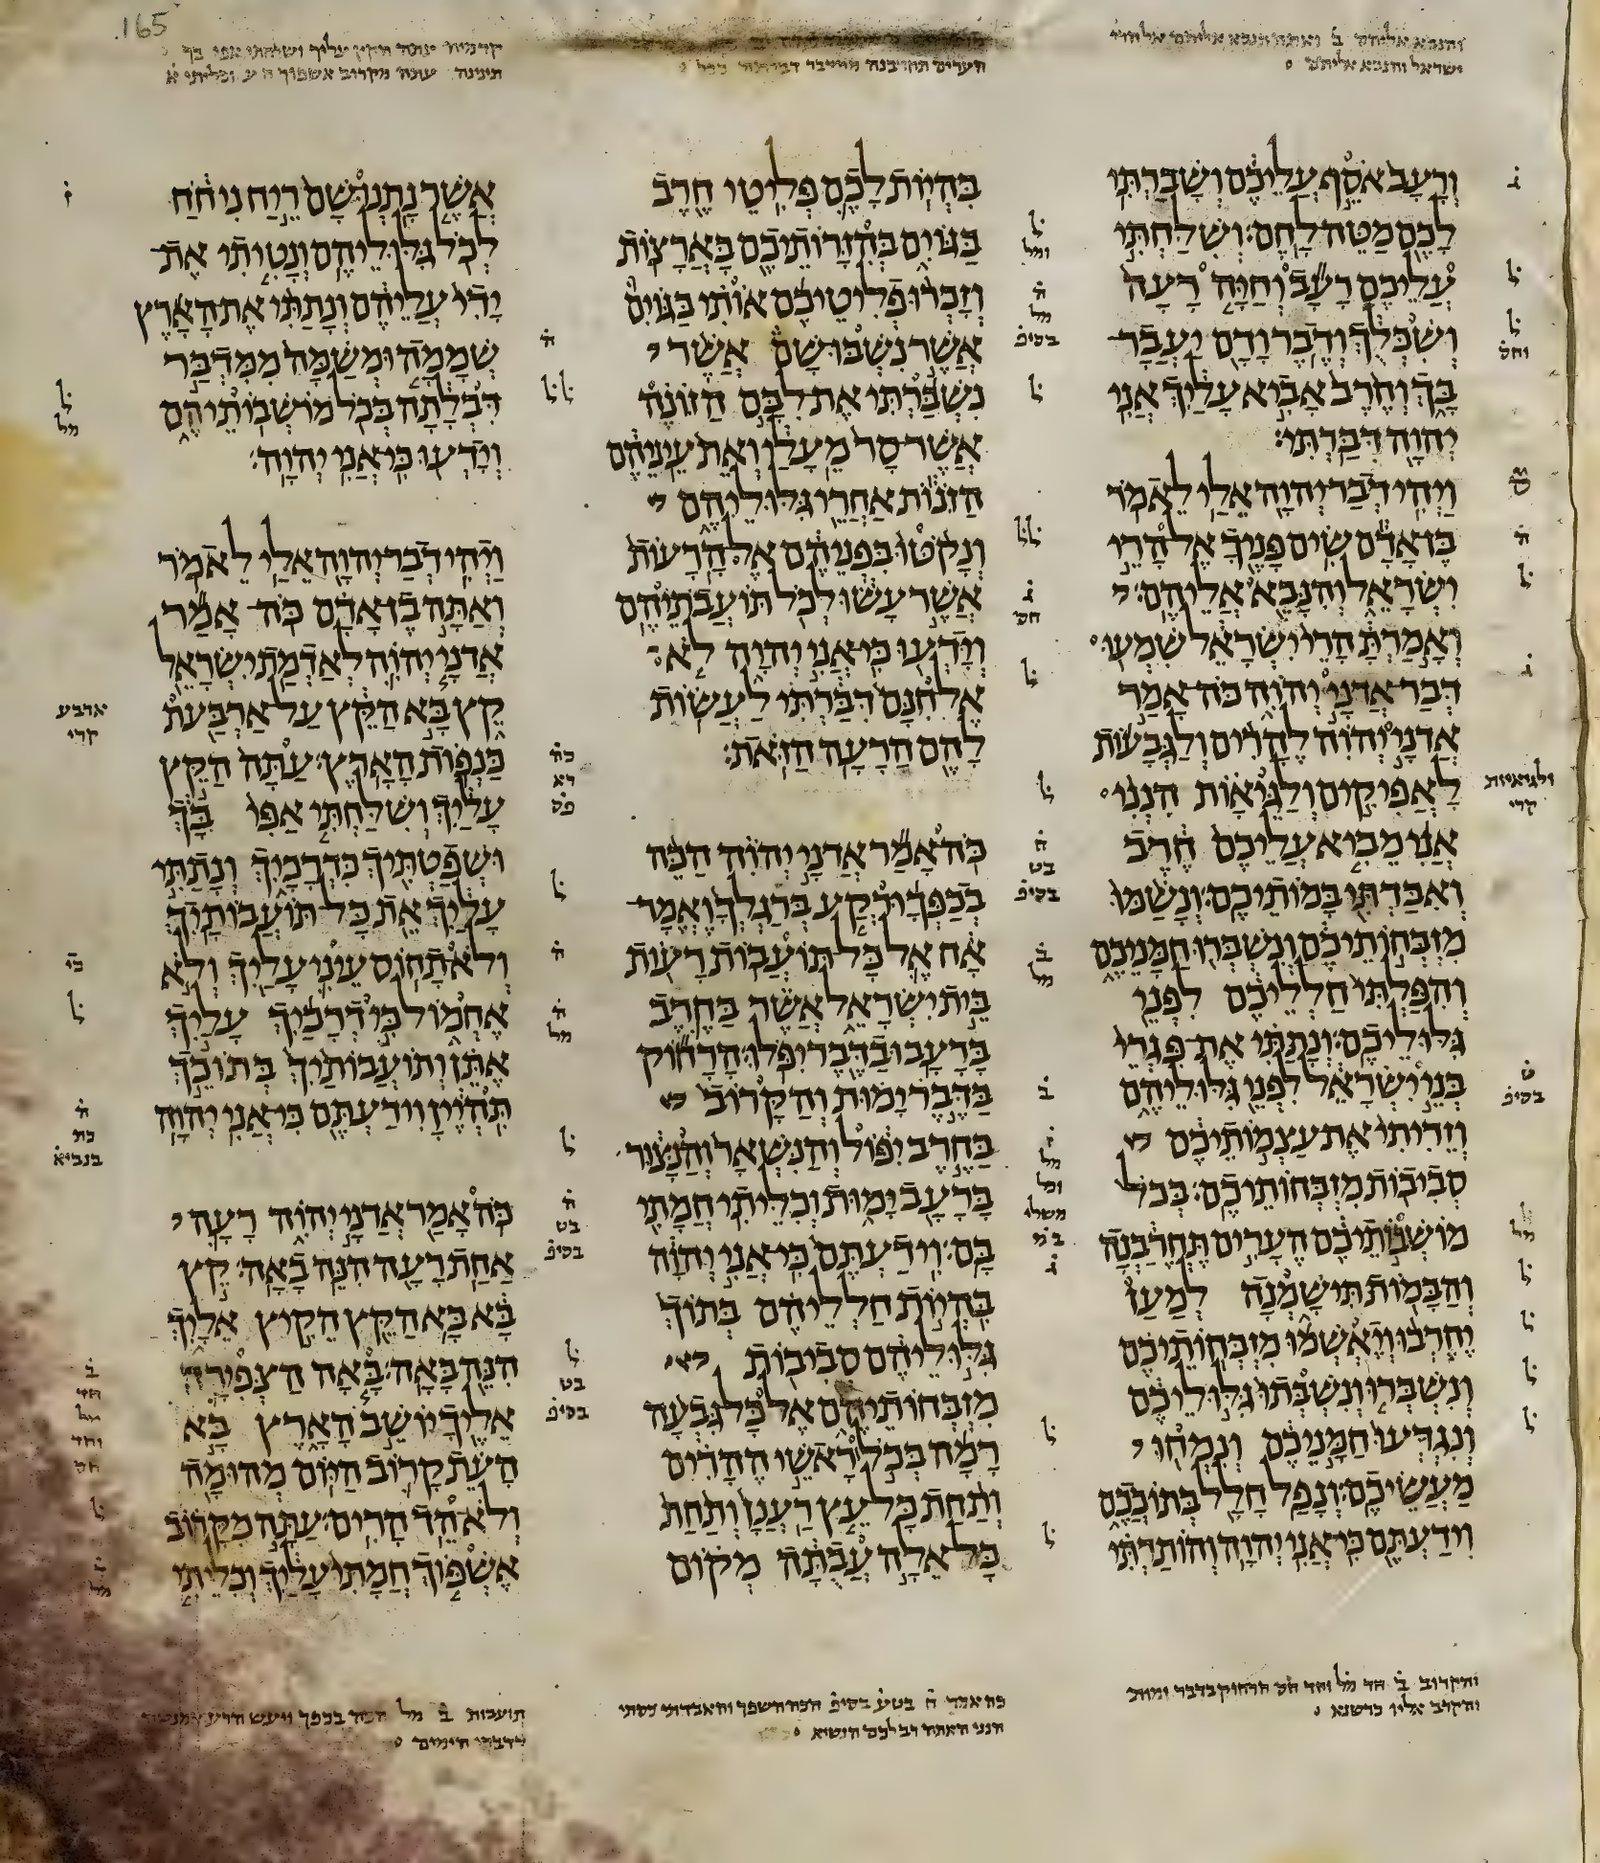 והנבא אליהם ב ואתה הנבא אליהם אל הרי
ישראל והנבא אליהם
ורעב אסף עליכם ושברתי
לכם מטה לחם׃ ושלחתי
עליכם רעב וחיה רעה
ושכלך ודבר ודם יעבר
בך וחרב אביא עליך אני
יהוה דברתי׃
ויהי דבר יהוה אלי לאמר
בן אדם שים פניך אל הרי
ישראל והנבא אליהם׃
ואמרת הרי ישראל שמעו
דבר אדני יהוה כה אמר
אדני יהוה להרים ולגבעות
לאפיקים ולגיאות הנני
אני מביא עליכם חרב
ואבדתי במותיכם׃ ונשמו
מזבחותיכם ונשברו חמניכם
והפלתי חלליכם לפני
גלוליכם׃ ונתתי את פגרי
בני ישראל לפני גלוליהם
וזריתי את עצמותיכם
סביבות מזבחותיכם׃ בכל
מושבותיכם הערים תחרבנה
והבמות תישמנה למען
יחרבו ויאשמו מזבחותיכם
ונשברו ונשבתו גלוליכם
ונגדעו חמניכם ונמחו
מעשיכם׃ ונפל חלל בתוככם
וידעתם כי אני יהוה׃ והותרתי
והקרוב ב חד מל וחד חס הרחוק בדבר ימות
והקרב אליו כרשנא
הערים תחרבנה
בהיות לכם פליטי חרב
בגוים בהזרותיכם בארצות׃
וזכרו פליטיכם אותי בגוים
אשר נשבו שם אשר
נשברתי את לבם הזונה
אשר סר מעלי ואת עיניהם
הזנות אחרי גלוליהם
ונקטו בפניהם אל הרעות
אשר עשו לכל תועבתיהם׃
וידעו כי אני יהוה לא
אל חנם דברתי לעשות
להם הרעה הזאת׃
כה אמר אדני יהוה הכה
בכפך ורקע ברגלך ואמר
אח אל כל תועבות רעות
בית ישראל אשר בחרב
ברעב ובדבר יפלו׃ הרחוק
בדבר ימות והקרוב
בחרב יפול והנשאר והנצור
ברעב ימות וכליתי חמתי
בם׃ וידעתם כי אני יהוה
בהיות חלליהם בתוך
גלוליהם סביבות
מזבחותיהם אל כל גבעה
רמה בכל ראשי ההרים
ותחת כל עץ רענן ותחת
כל אלה עבתה מקום
כה אמר ה בטע בסיפ הכה השפך והאבדתי כסתי
הנני האתה רב לכם הנשיא
עליך ושלחתי אפי בך
עתה מקרוב אשפוך
אשר נתנו שם ריח ניחח
לכל גלוליהם׃ ונטיתי את
ידי עליהם ונתתי את הארץ
שממה ומשמה ממדבר
דבלתה בכל מושבותיהם
וידעו כי אני יהוה׃
ויהי דבר יהוה אלי לאמר׃
ואתה בן אדם כה אמר
אדני יהוה לאדמת ישראל
קץ בא הקץ על ארבעת
כנפות הארץ׃ עתה הקץ
עליך ושלחתי אפי בך
ושפטתיך כדרכיך ונתתי
עליך את כל תועבותיך׃
ולא תחוס עיני עליך ולא
אחמול כי דרכיך עליך
אתן ותועבותיך בתוכך
תהיין וידעתם כי אני יהוה׃
כה אמר אדני יהוה רעה
אחת רעה הנה באה׃ קץ
בא בא הקץ הקיץ אליך
הנה באה׃ באה הצפירה
אליך יושב הארץ בא
העת קרוב היום מהומה
ולא הד הרים׃ עתה מקרוב
אשפוך חמתי עליך וכליתי
תועבות ב מל הכה בכפך ויעש הרע מנשה
דדברי הימים
ולגיאיות
קרי
ארבע
קרי
165